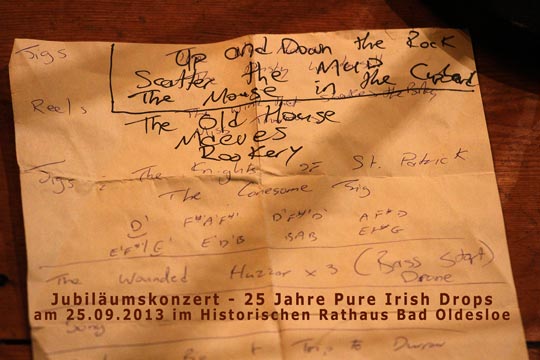 Jigs
Up and Down the Rock
Scatter the Mud
The Mouse in the Cupboard
Reels
The Old House
Maeves
Rookery
Jigs : The Knights of St. Patrick
The Lonesome Jig
D' F#'A'F#' D'F#'D' A F# D
E'F#'/E' E'D'B BAB
The Wounded Huzzar x 3 (Bass Start)
Drone
Jubiläumskonzert - 25 Jahre Pure Irish Drops
am 25.09.2013 im Historischen Rathaus Bad Oldesloe
Song
Trip to